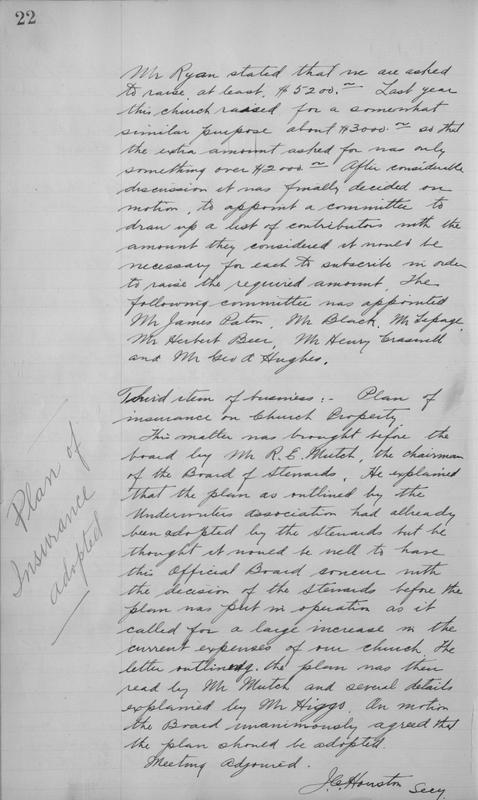 22
Mr Ryan stated that we are asked
to raise at least, $5200.~ Last year
this church raised for a somewhat
similar purpose about $3000.~ so that
the extra amount asked for was only
something over $2000.~ After considerable
discussion it was finally decided on
motion, to appoint a committee to
draw up a list of contributors with the
amount they considered it would be
necessary for each to subscribe in order
to raise the required amount. The
following committee was appointed
Mr James Paton, Mr Black, Mr Lepage,
Mr Herbert Beer, Mr Henry Craswell
and Mr Geo A Hughes.
Third item of business:- Plan of
insurance on Church Property
This matter was brought before the
board by Mr R. E. Mutch, the chairman
of the Board of Stewards. He explained
that the plan as outlined by the
Underwriters association had allready
been adopted by the Stewards but he
thought it would be well to have
this Official Board concur with
the decision of the Stewards before the
plan was put in operation as it
called for a large increase in the
current expenses of our church. The
letter outlining the plan was then
read by Mr Mutch and several details
explained by Mr Higgs. On motion
the Board unanimously agreed that
the plan should be adopted.
Meeting adjourned.
J. C. Houston Secy.
Plan of
Insurance
adopted